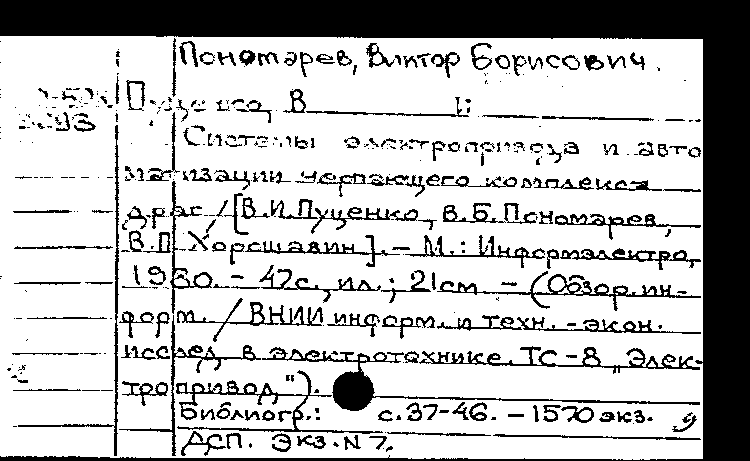 Пономарев, Виктор Борисович.
Пуценко, В
Системы электропривода и авто
матизации черпающего комплекса
драг / [В.И.Пуценко, В.Б.Пономарев,
В.П. Хорошавин]. – М.: Информэлектро,
1980. – 47с., ил.; 21см – (Обзор. ин-
форм. / ВНИИ информ. и техн.-экон.
исслед. в электротехнике. ТС-8 „Элек-
тропривод").
Библиогр.: с.37-46. – 1570экз.
ДСП. Экз.N 7.